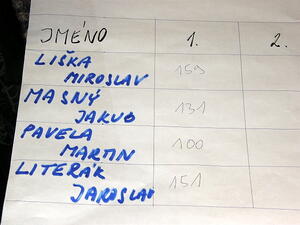 JMÉNO 1. 2.
LIŠKA
MIROSLAV 159
MASNÝ
JAKUB 131
PAVELA
MARTIN 100
LITERÁK
JAROSLAV 151